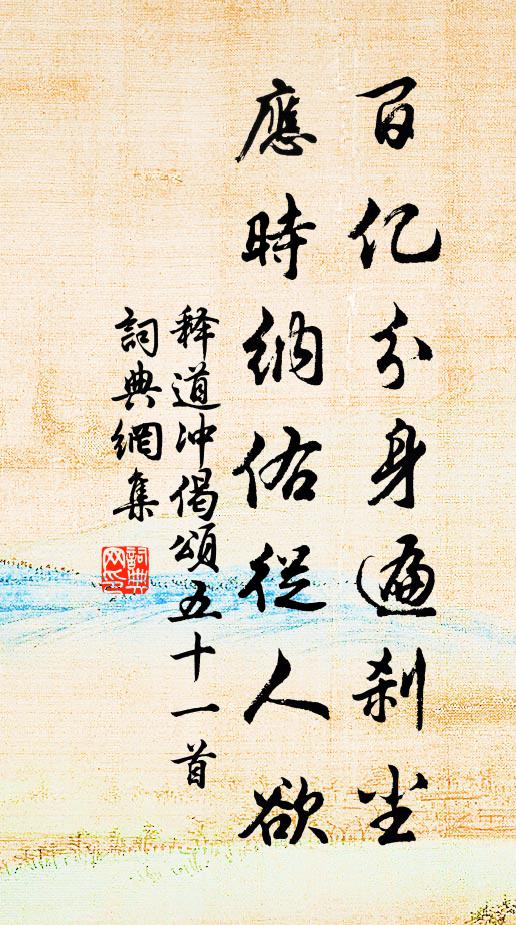 百亿分身遍刹尘
應時納佑從人欲
释道冲偈頌五十一首
詞典網集
詞典
网